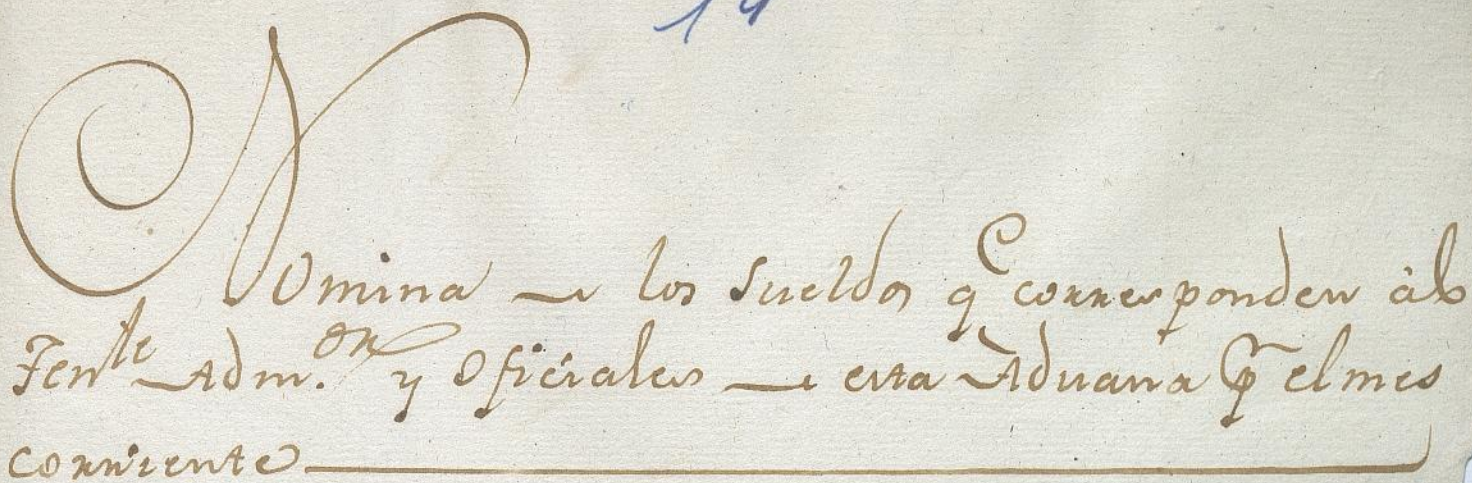 14
Nomina de los sueldos q.e corresponden àl
Ten.te Adm.or y Oficiales de esta Aduana p.r el mes
corriente